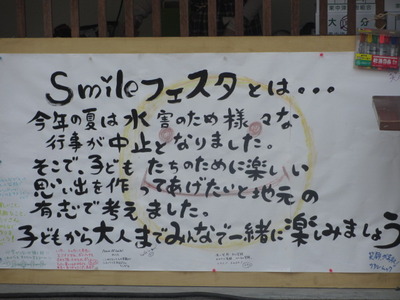 Smileフェスタとは・・・
今年の夏は水害のため様々な
行事が中止となりました。
そこで、子どもたちのために楽しい
思い出を作ってあげたいと地元の
有志で考えました。
子どもから大人までみんなで一緒に楽しみましょう